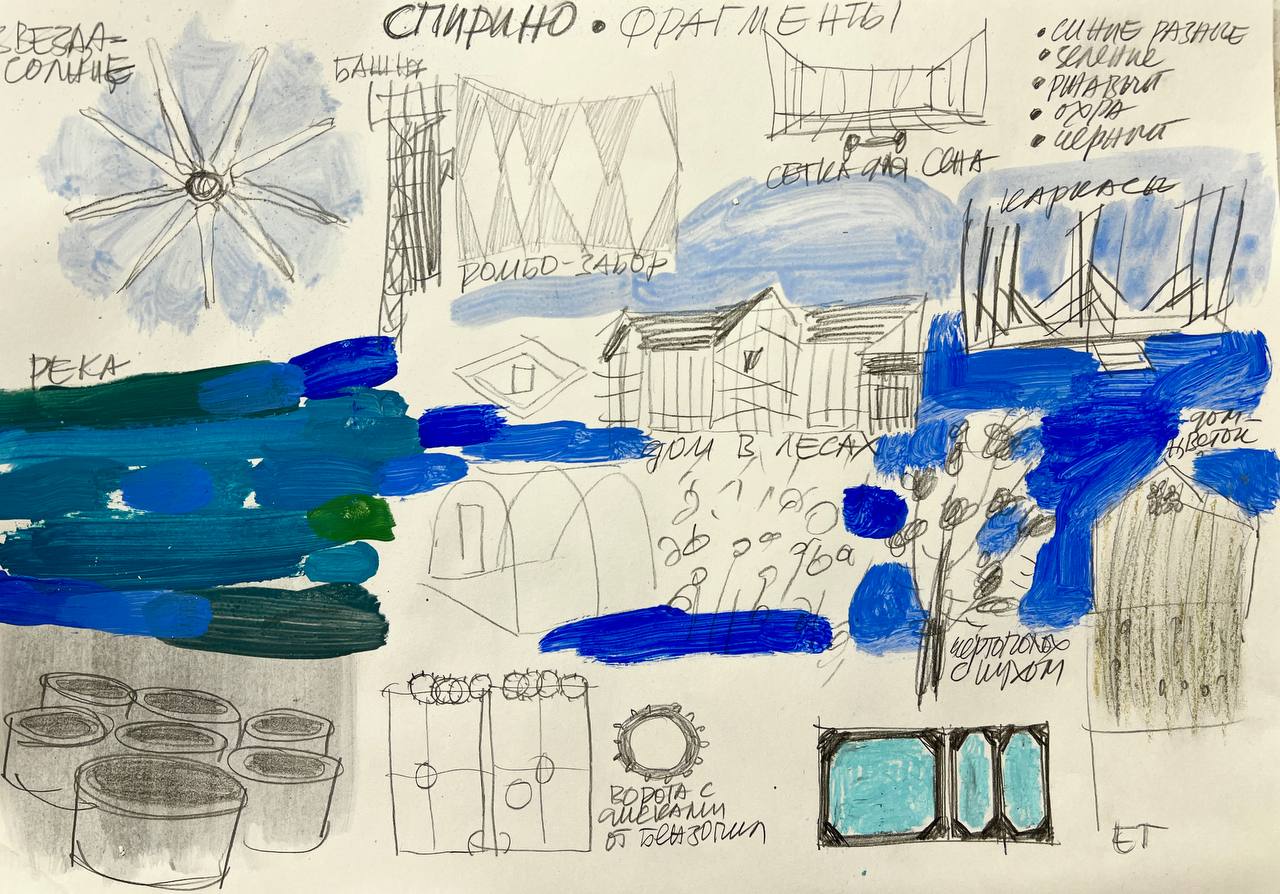 СПИРИНО • ФРАГМЕНТЫ
ЗВЕЗДА-
СОЛНЦЕ
БАШНЯ
РОМБО-ЗАБОР
СЕТКА ДЛЯ СЕНА
• СИНИЕ РАЗНЫЕ
• зеленые
• РЖАВЫЙ
• ОХРА
• черный
КАРКАСЫ
РЕКА
ДОМ В ЛЕСАХ
ДОМ-
ЦВЕТОК
ЧЕРТОПОЛОХ
С ПУХОМ
ВОРОТА С
ДИСКАМИ
ОТ БЕНЗОПИЛ
ЕГ